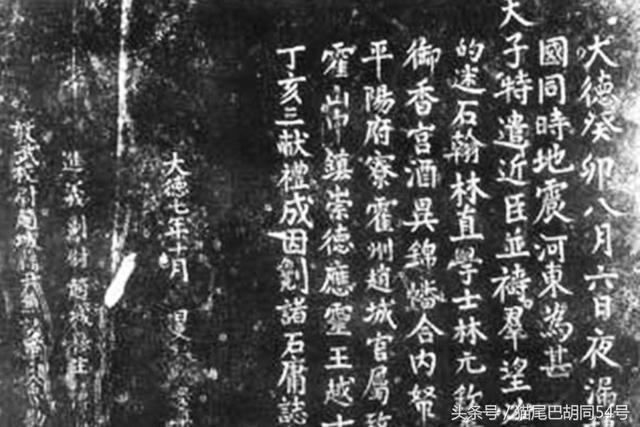 大德癸卯八月六日夜漏
國同時地震河東為甚
天子特遣近臣並禱羣望
的迷石翰林直學士林元
御香宫酒異錦幡合内帑
平陽府寮霍州趙城官属
霍山中鎮崇德應靈王越
丁亥三献禮成因劖諸石庸誌
大德七年十月
進義副尉趙城
敦武校尉趙城
头条号 / 猫尾巴胡同54号